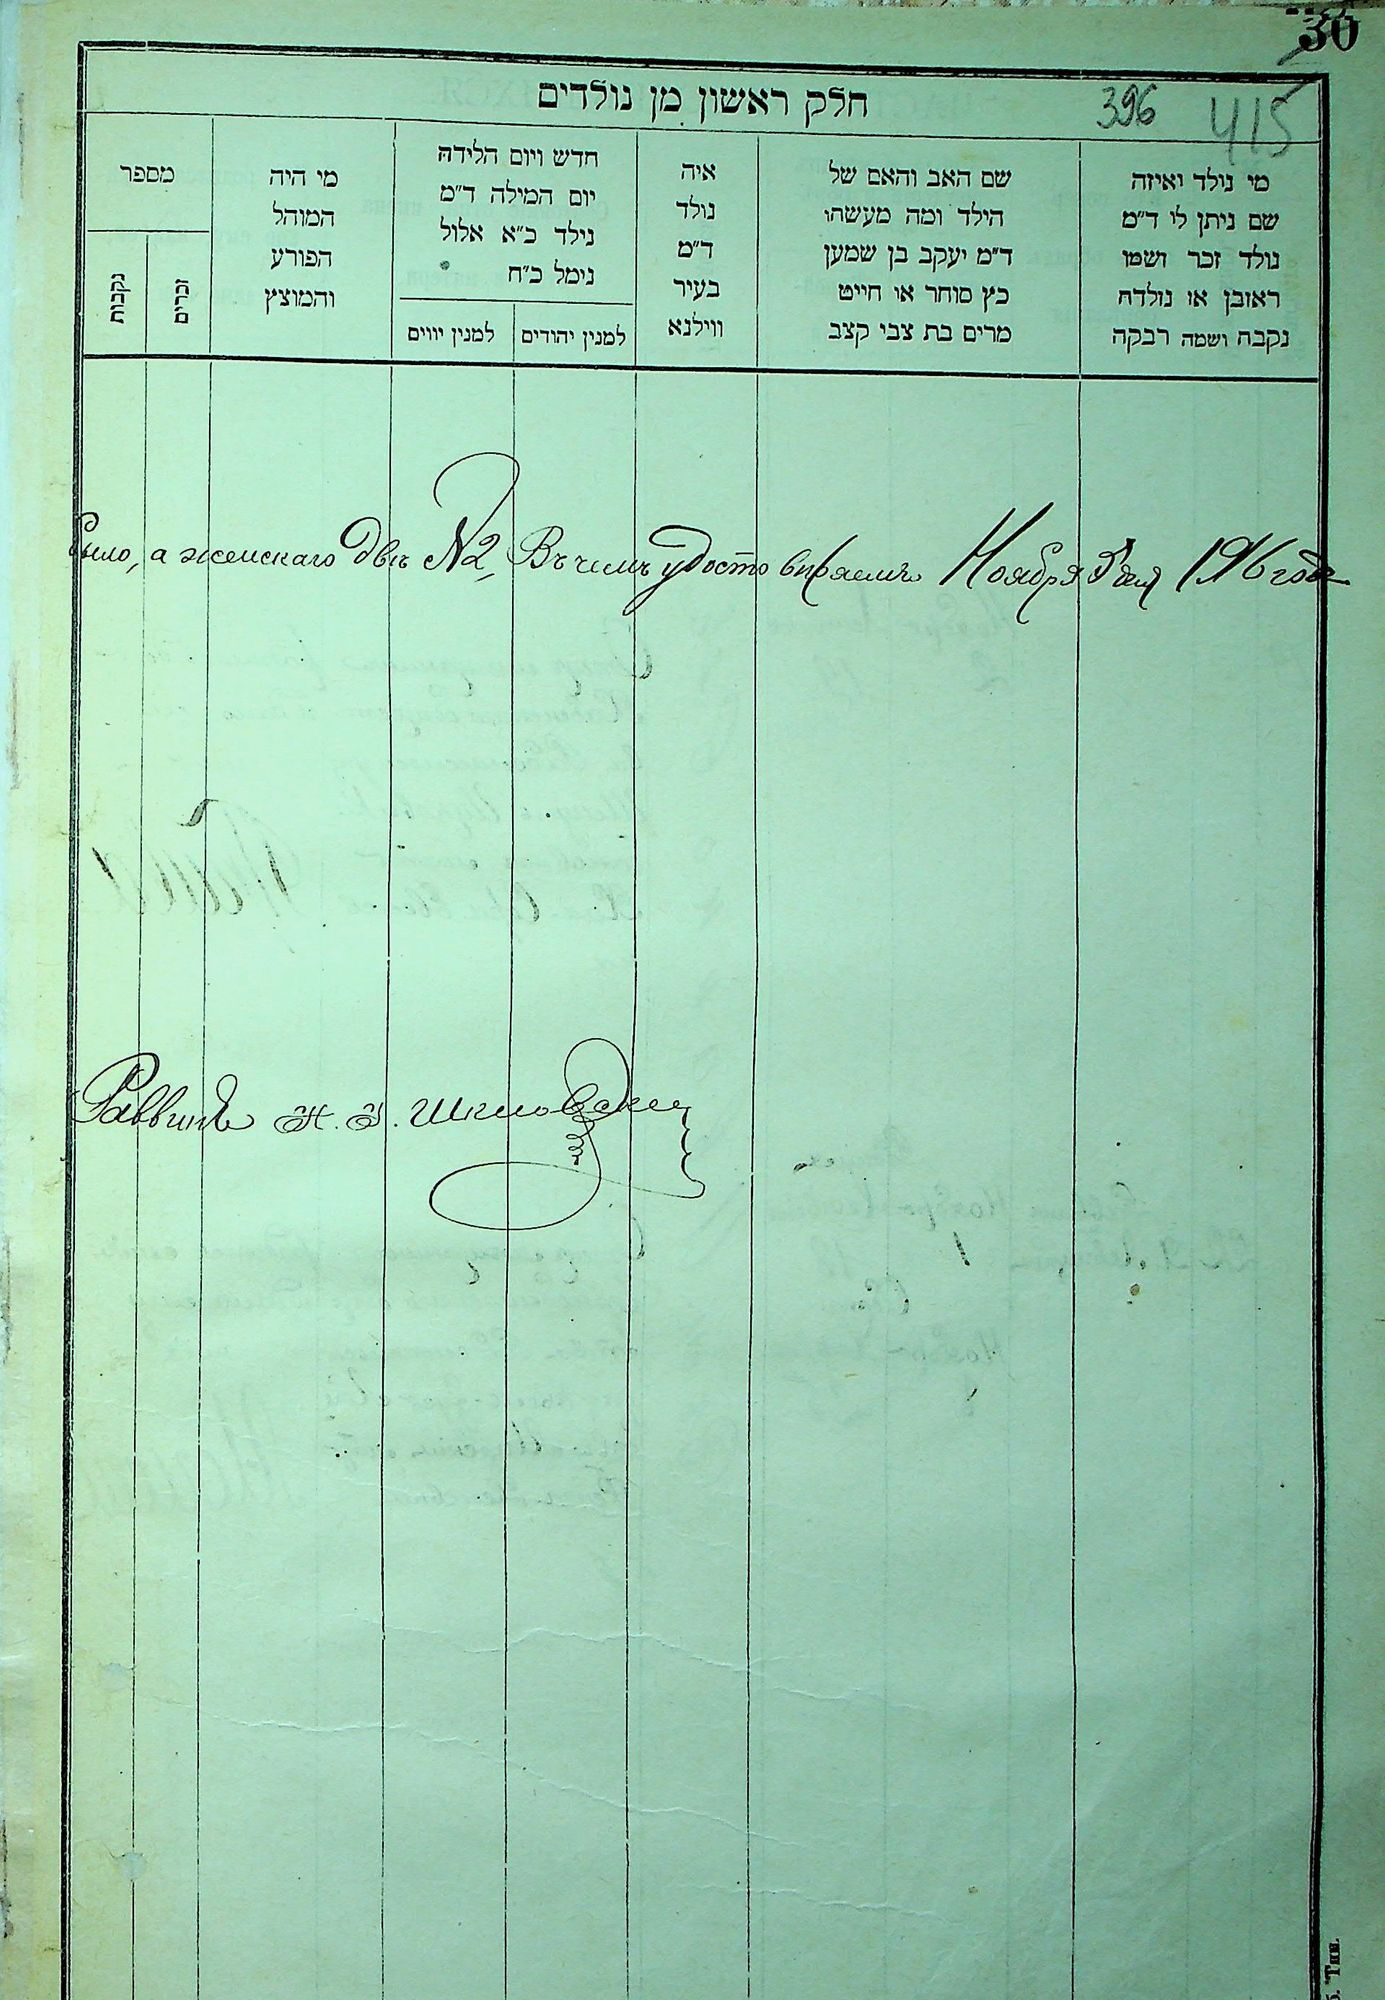 30
חלק ראשון מן נולדים
396
415
מי נולד ואיזה
שם ניתן לו ד"מ
נולד זכר ושמו
ראובן או נולדה
נקבה ושמה רבקה
שם האב והאם של
הילד ומה מעשהו
ד"מ יעקב בן שמעון
כץ סוחר או חייט
מרים בת צבי קצב
איה
נולד
ד"מ
בעיר
ווילנא
חדש ויום הלידה
יום המילה ד"מ
נילד כ"א אלול
נימל כ"ח
למנין יהודים
למנין יווים
מי היה
המוהל
הפורע
והמוצץ
מספר
זכרים
נקבות
было, а женскаго двѣ №2, Въ чемъ удостовѣряемъ Ноября дня 1916 года
Раввинъ
Тип.